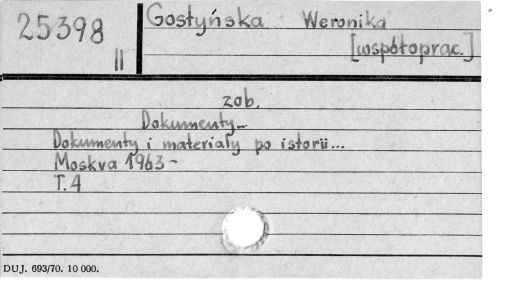 25398
II
Gostyńska Weronika
[współoprac.]
zob.
Dokumenty_
Dokumenty i materiały po istorii...
Moskva 1963-
T.4
DUJ. 693/70. 10 000.